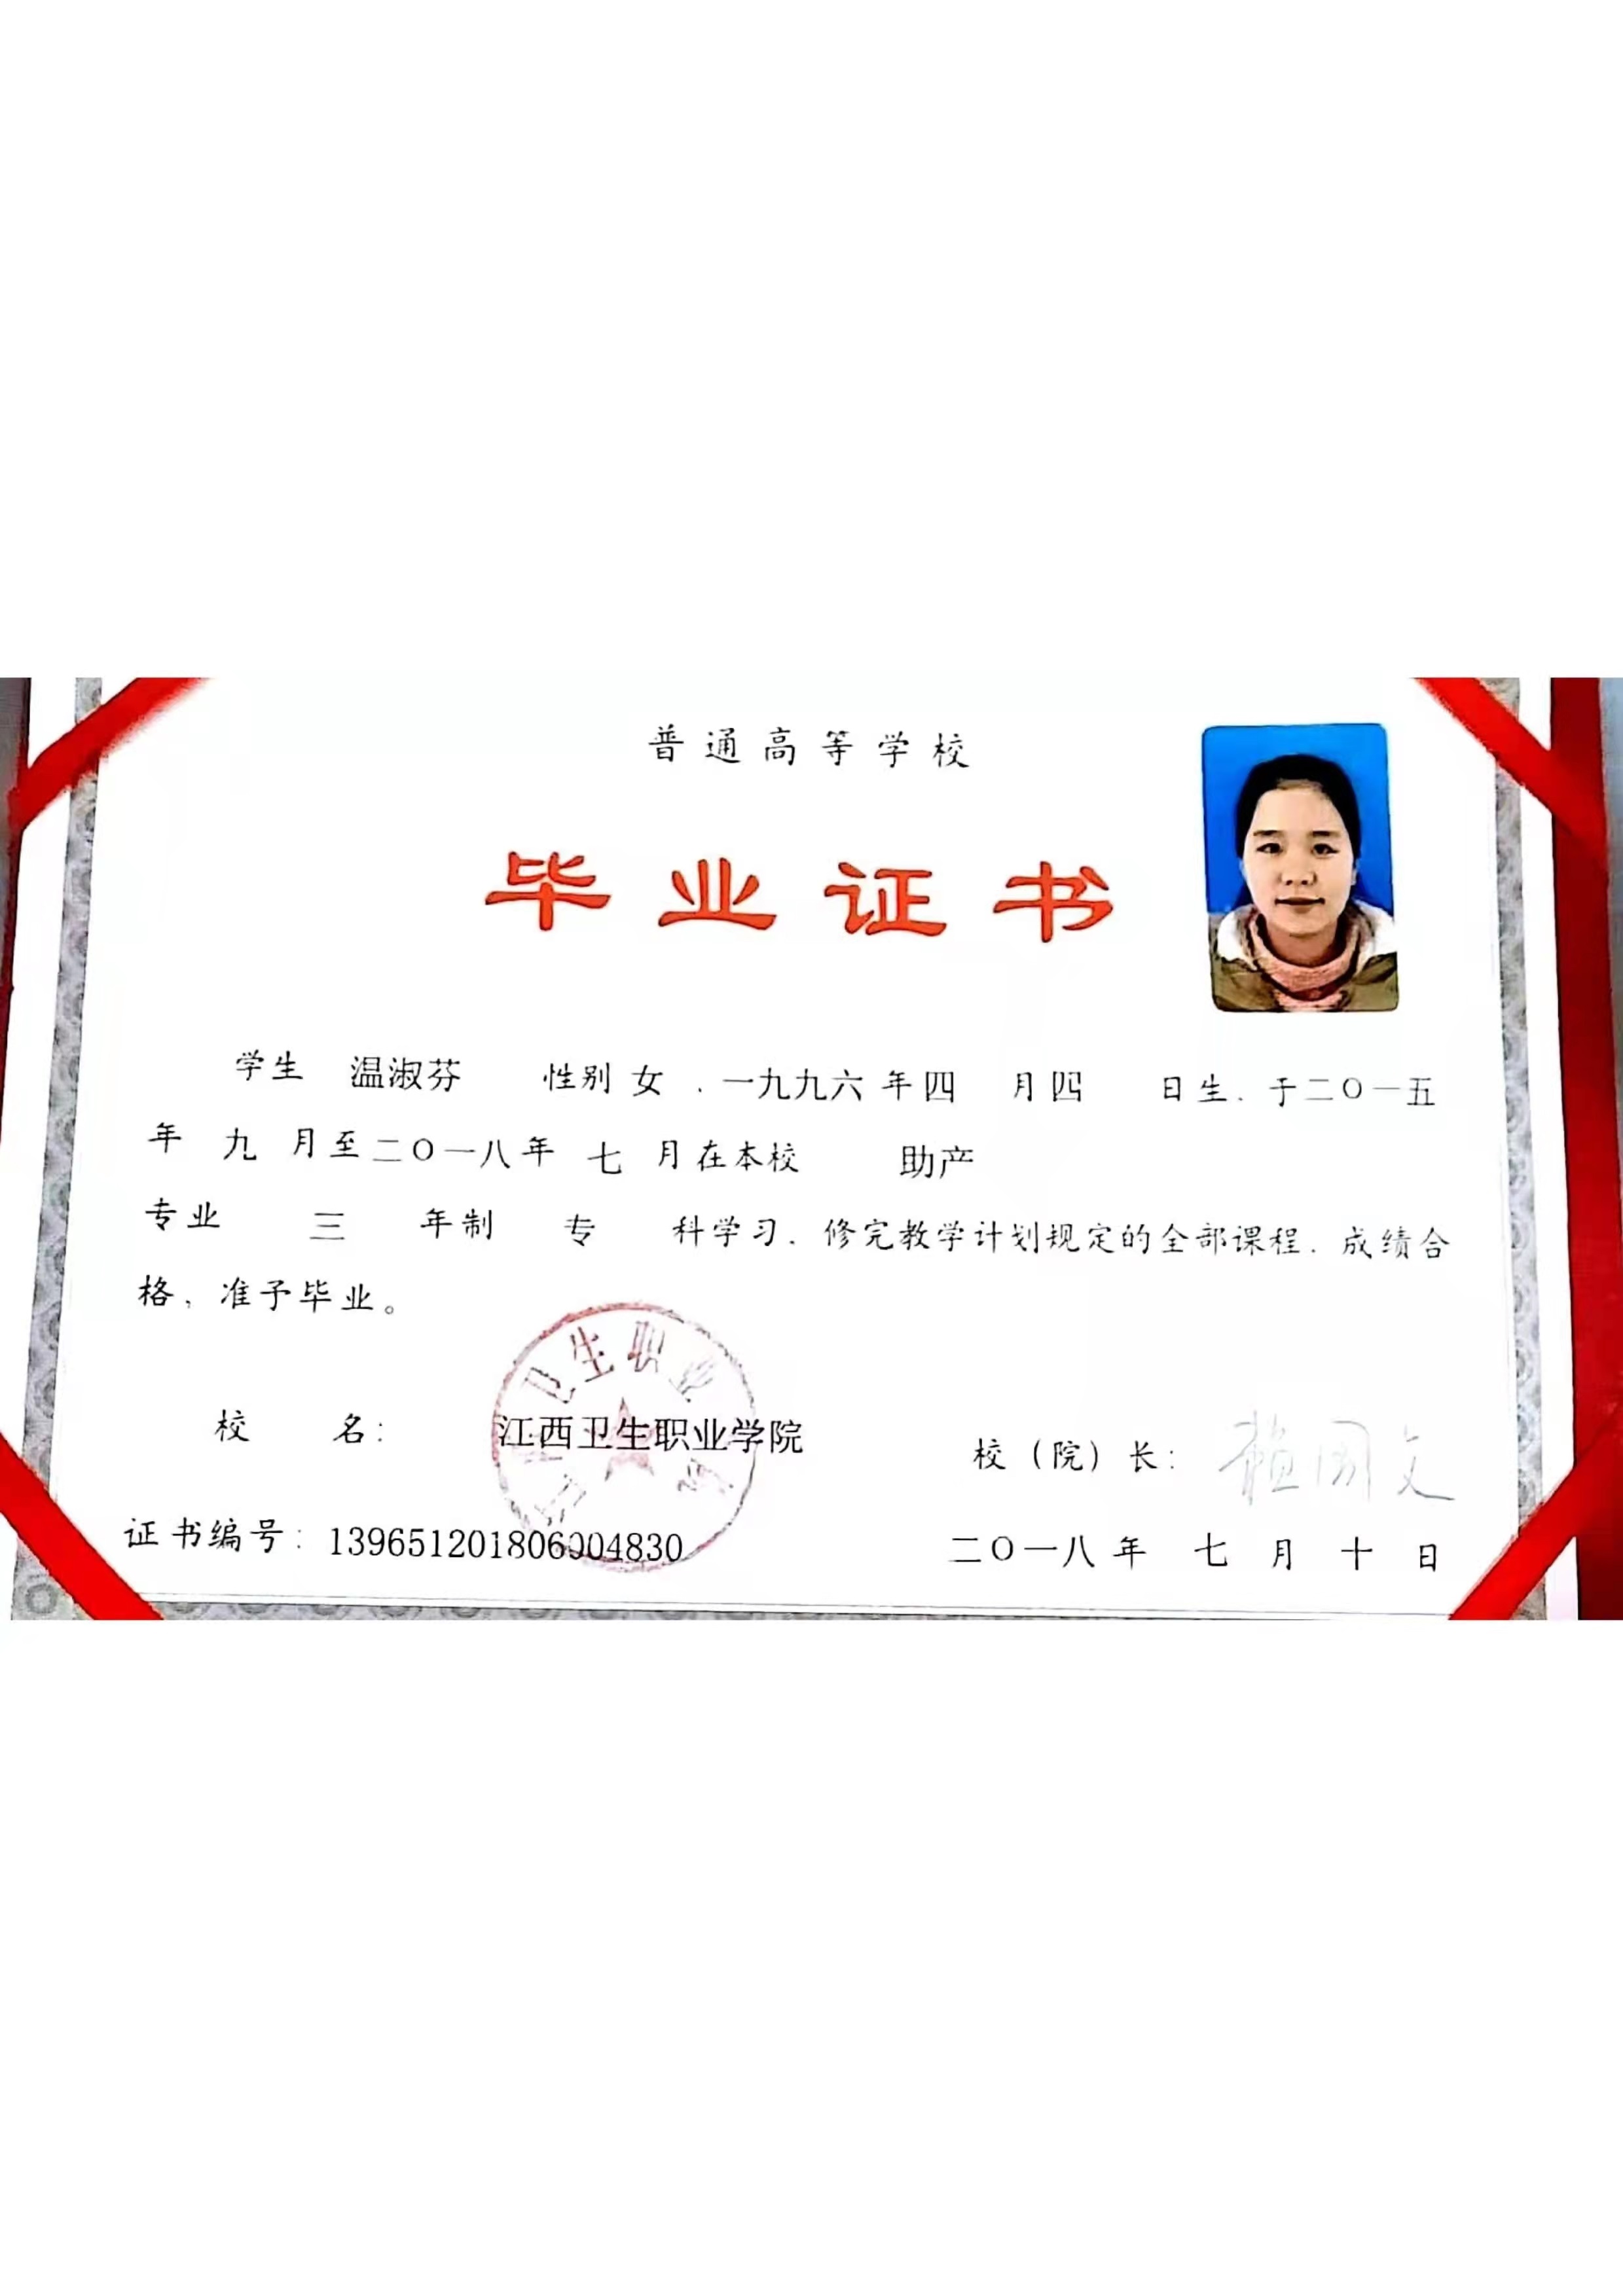 普通高等学校
毕业证书
学生 温淑芬 性别 女 ,一九九六 年 四 月 四 日生,于二〇一五
年 九 月至二〇一八年 七 月在本校 助产
专业 三 年制 专 科学习,修完教学计划规定的全部课程,成绩合
格,准予毕业。
卫生职业
校 名: 江西卫生职业学院
校(院)长: 赖国文
证书编号: 139651201806004830
二〇一八年 七 月 十 日